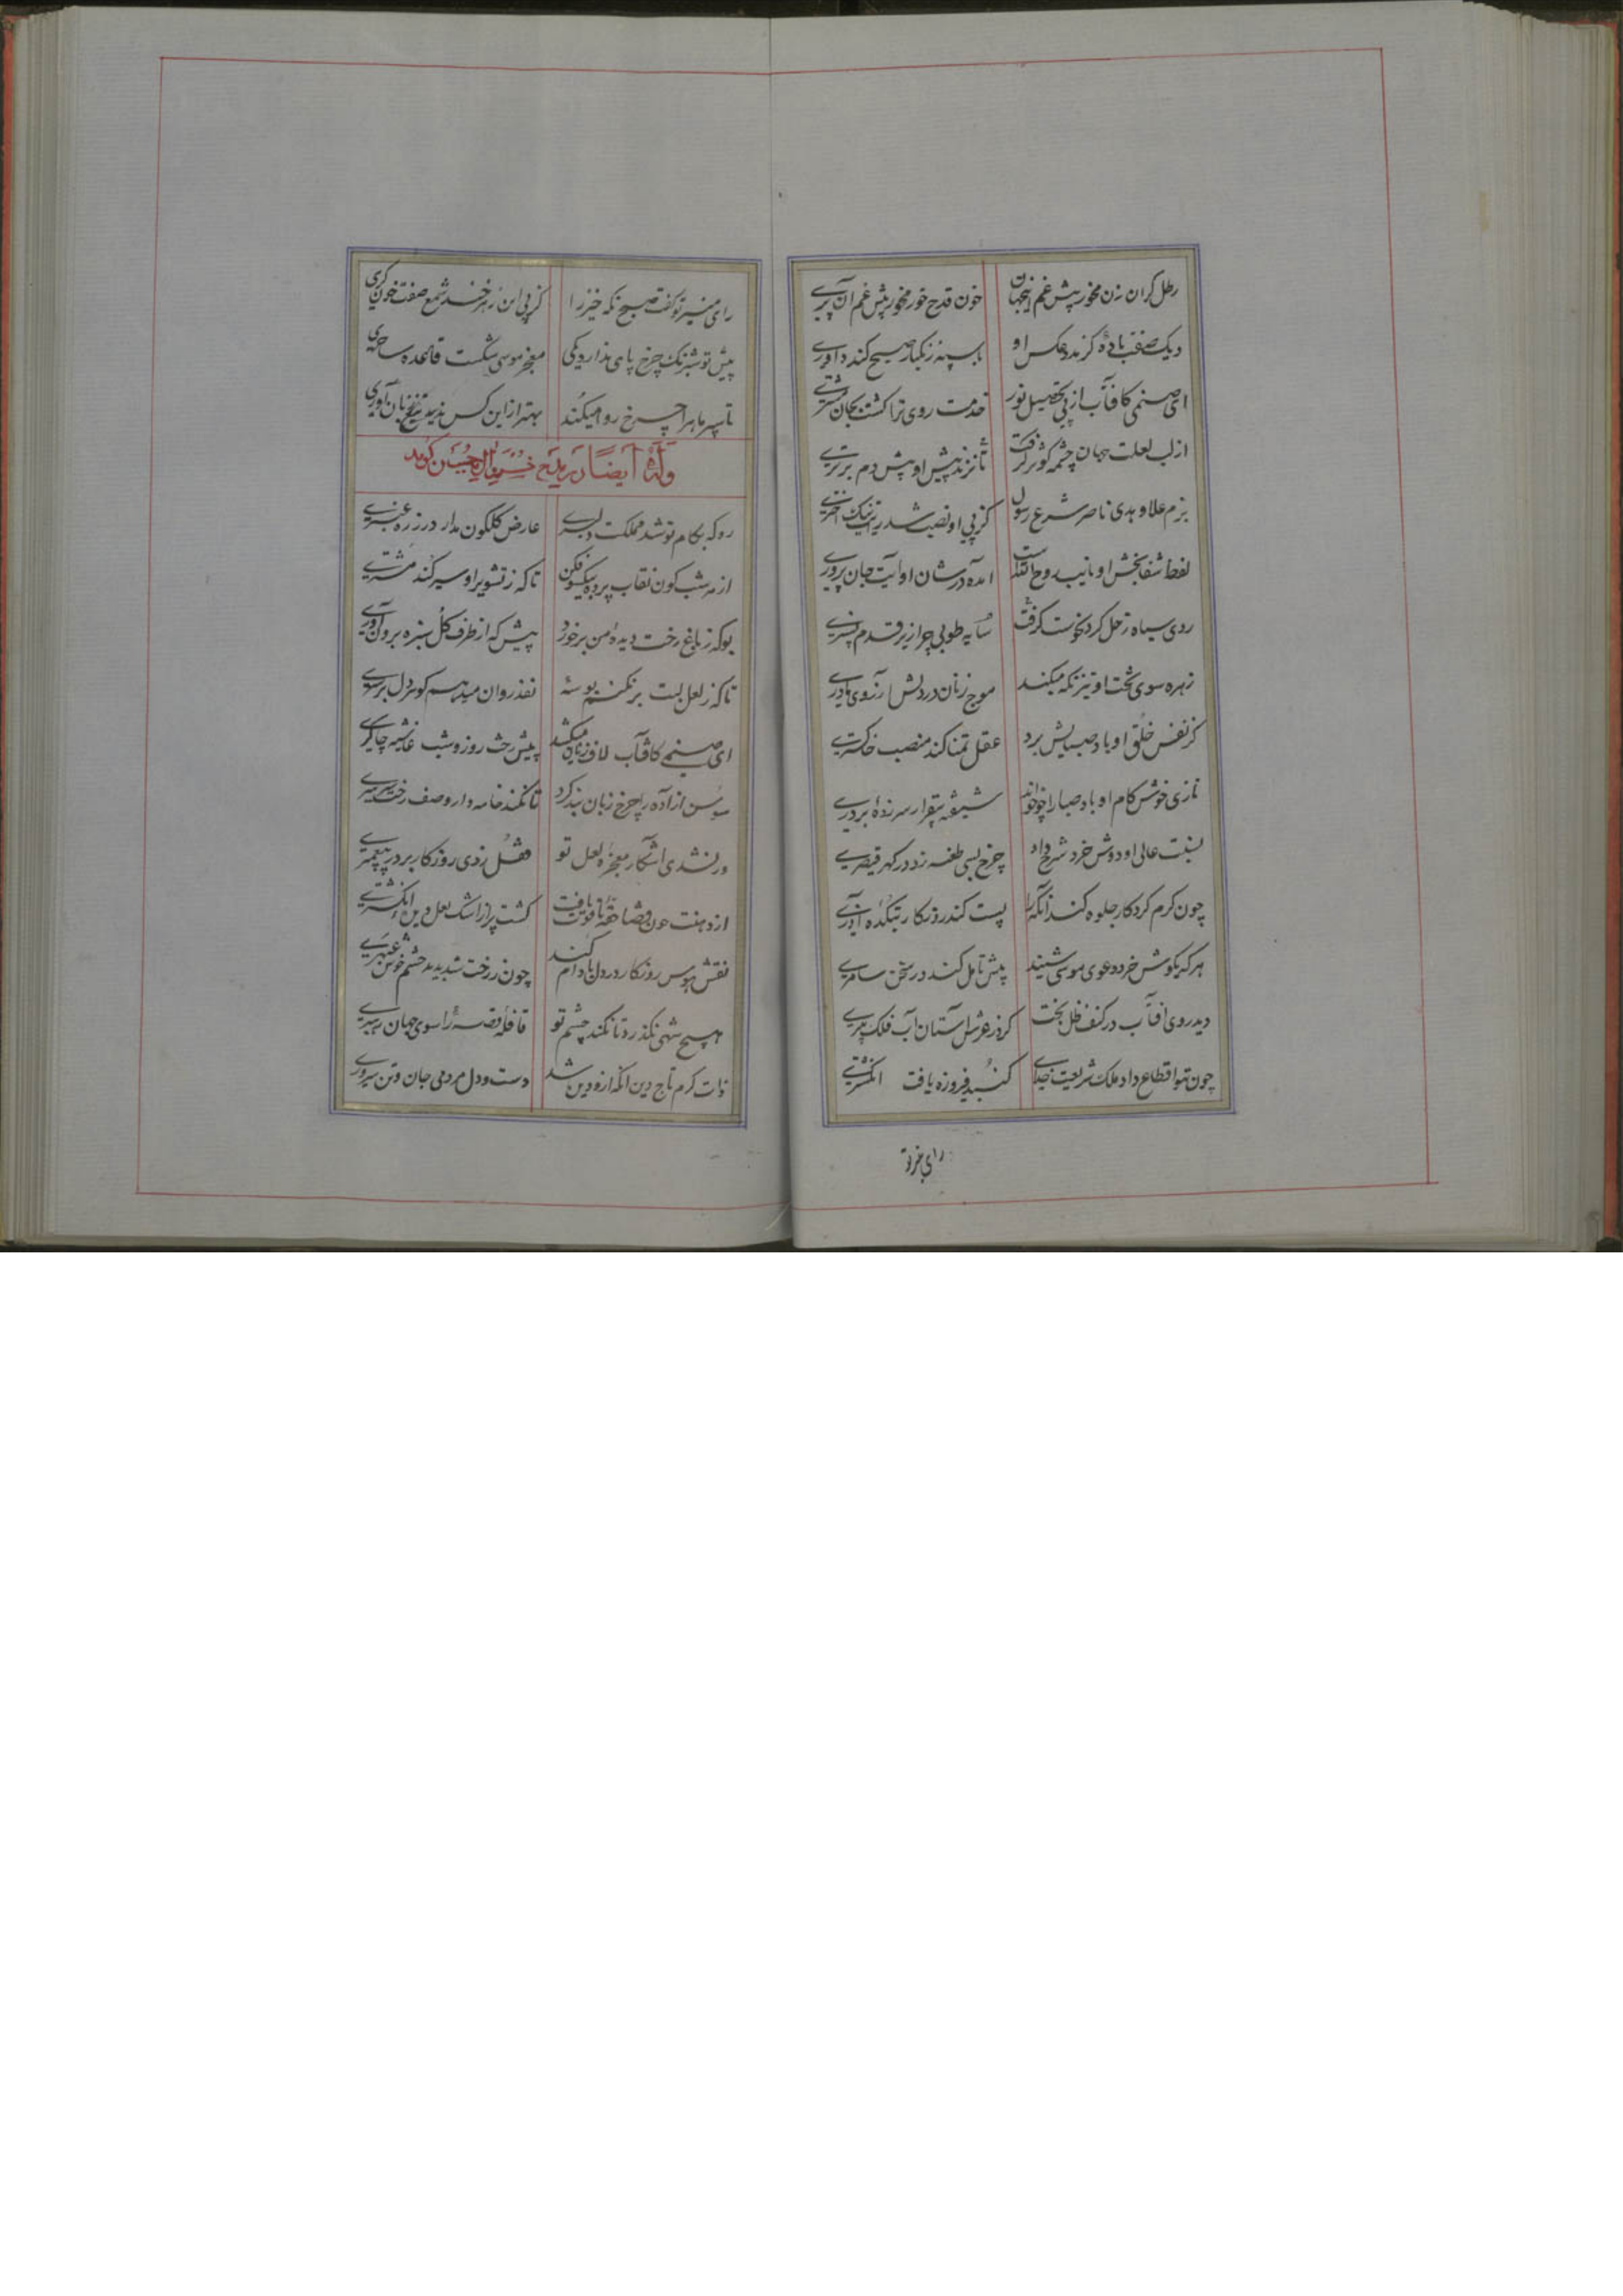 رطل گران زن مخور پیش غم این جهان خون قدح خور مخور پیش غم آن پری
دیک صفت باده کز مدد عکس او با سپه زنگبار صبح کند داوری
ای صنمی کافتاب از پی تحصیل نور خدمت روی ترا گشت بجان مشتری
از لب لعلت جهان چشمه کوثر گرفت تا نزند پیش او پیش دم برتری
بزم علاو هدی ناصر شرع رسول کز پی او نصیب شد نیک اختری
لفظ شفابخش او نایب روح آمده در شان او آیت جان پروری
روی سیاه زحل کرد نحوست گرفت سایه طوبی چرا زیر قدم نسپری
زهره سوی تخت او تیز نگه میکند موج زنان در دلش آرزوی مادری
کز نفس خلق او باد صبا بیش برد عقل تمنا کند منصب خاکستری
تازی خوش کام او باد صبا را چو خواند شیفته بیقرار سر زده بر در
نسبت عالی او دوش خرد شرح داد چرخ بسی طعنه زد در گهر قیصری
چون کرم کردکار جلوه کند آنگه پست کند روزکار بتکده آذری
هر که بگوش خرد دعوی موسی شنید پیش تامل کند در سخن سامری
دید روی افتاب در کنف ظل بخت کرد ز عرش آستان آب فلک
چون بتو اقطاع داد ملک شریعت خدای گنبد فیروزه یافت انگشتری
رای منیر تو
رای منیر تو گفت صبح نگه خیز را کز پی این زهر خند شمع صفت خون گری
پیش تو شبرنگ چرخ پای ندارد یکی معجز موسی شکست قاعده ساحری
تا سپر ماه را چرخ رو میکند بهتر از این کس ندید تیغ زبان آوری
وله ایضا در مدح گوید
رو که بکام تو شد مملکت دلبری عارض گلگون مدار در زره عنبری
از مه شب گون نقاب پرده بیکسو فکن تا که ز تشویر او سیر کند مشتری
بو که ز باغ رخت دیده من برخورد پیش که از طرف گل سبزه برون آوری
تا که ز لعل لبت بر نکنم بوسه نقد روان میدهم کو سر دل برسری
ای صنمی کافتاب لاف زنان میکشد پیش رخت روز و شب غاشیه چاکری
سوسن آزاده را چرخ زبان بند کرد تا نکند خامه وار وصف رخت سرسری
ور نشدی آشکار معجزه لعل تو قفل زدی روزکار بر در پیغمبری
از دهنت چون قضا حقه یاقوت یافت گشت پر از اشک لعل دیده انگشتری
نقش هوس روزکار در دل بادام کند چون ز رخت شد پدید چشم خوش عبهری
هیچ شبی نگذرد تا نکند چشم تو قافله فتنه را سوی جهان رهبری
ذات کرم تاج دین آنکه ازو دین شد دست و دل مردمی جان و تن سروری